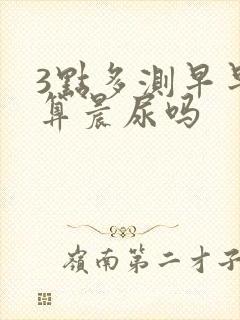 3點多測早早
算晨尿吗
嶺南第二才子